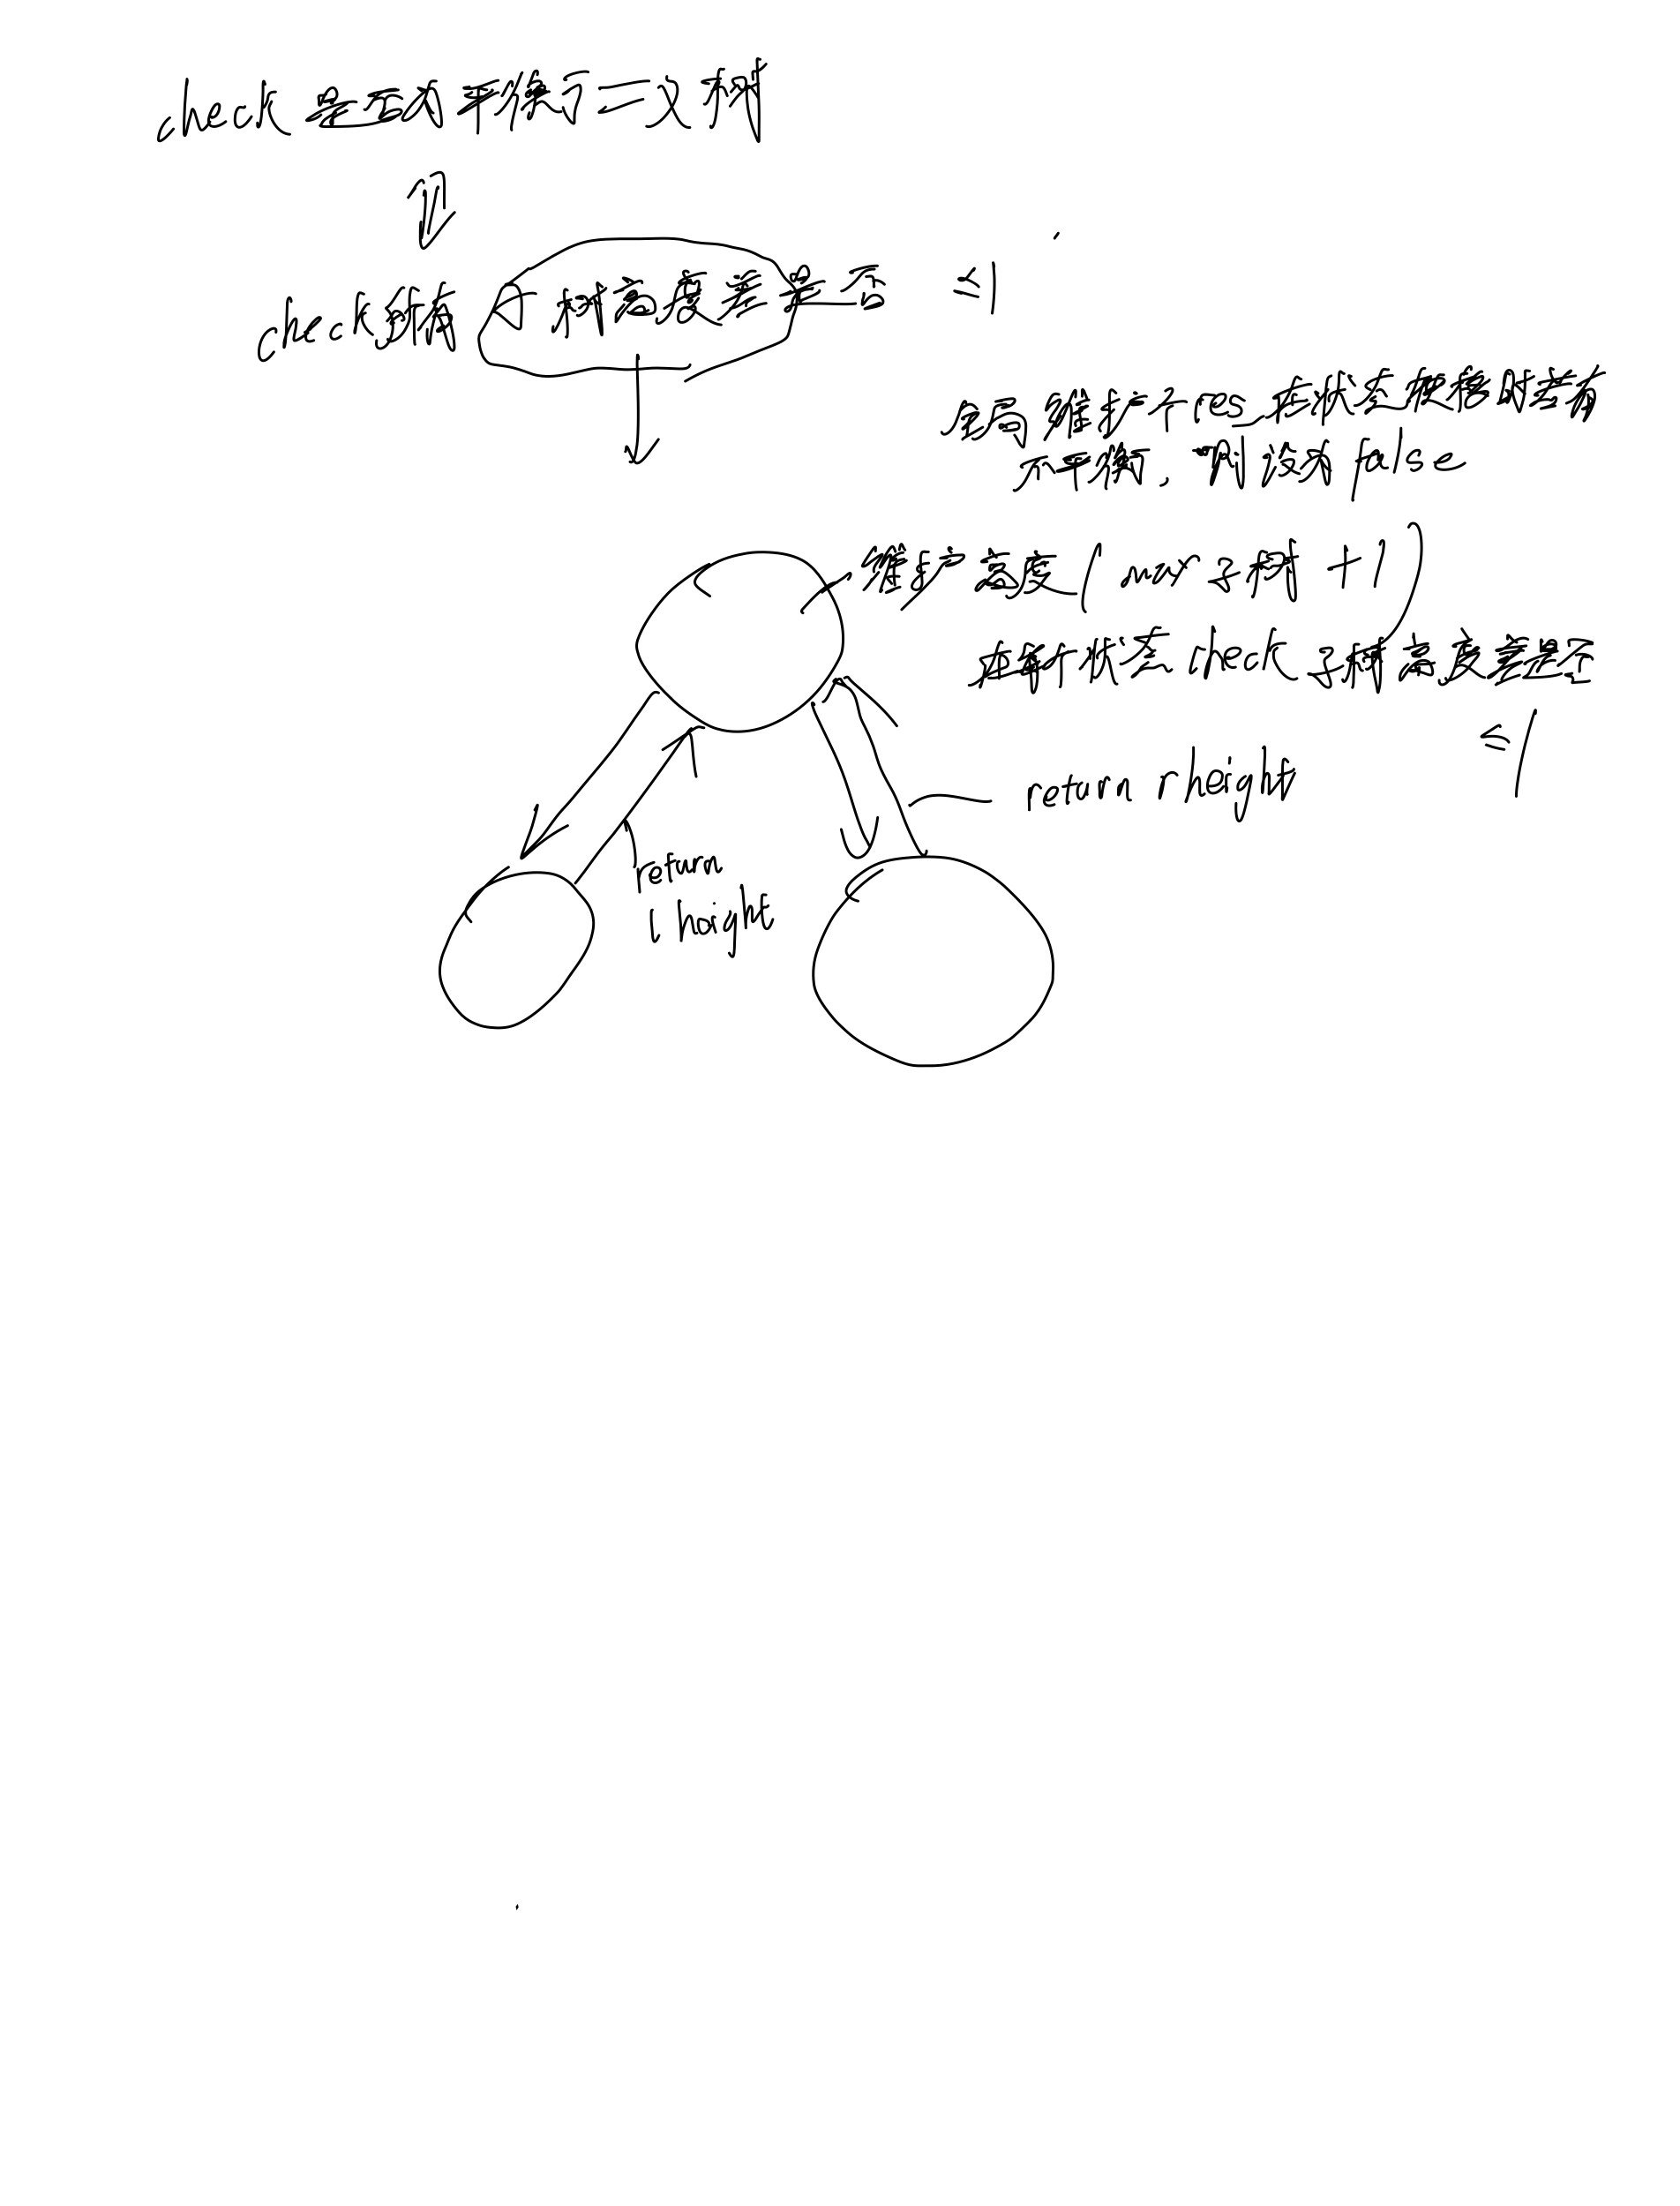 check 是否为平衡二叉树
check 所有子树高度差是否 ≤1
全局维护个res,在状态转移时若有
不平衡,则设为false
维护高度(max子树+1)
在每个状态check子树高度差是否
≤1
return rheight
return
lheight